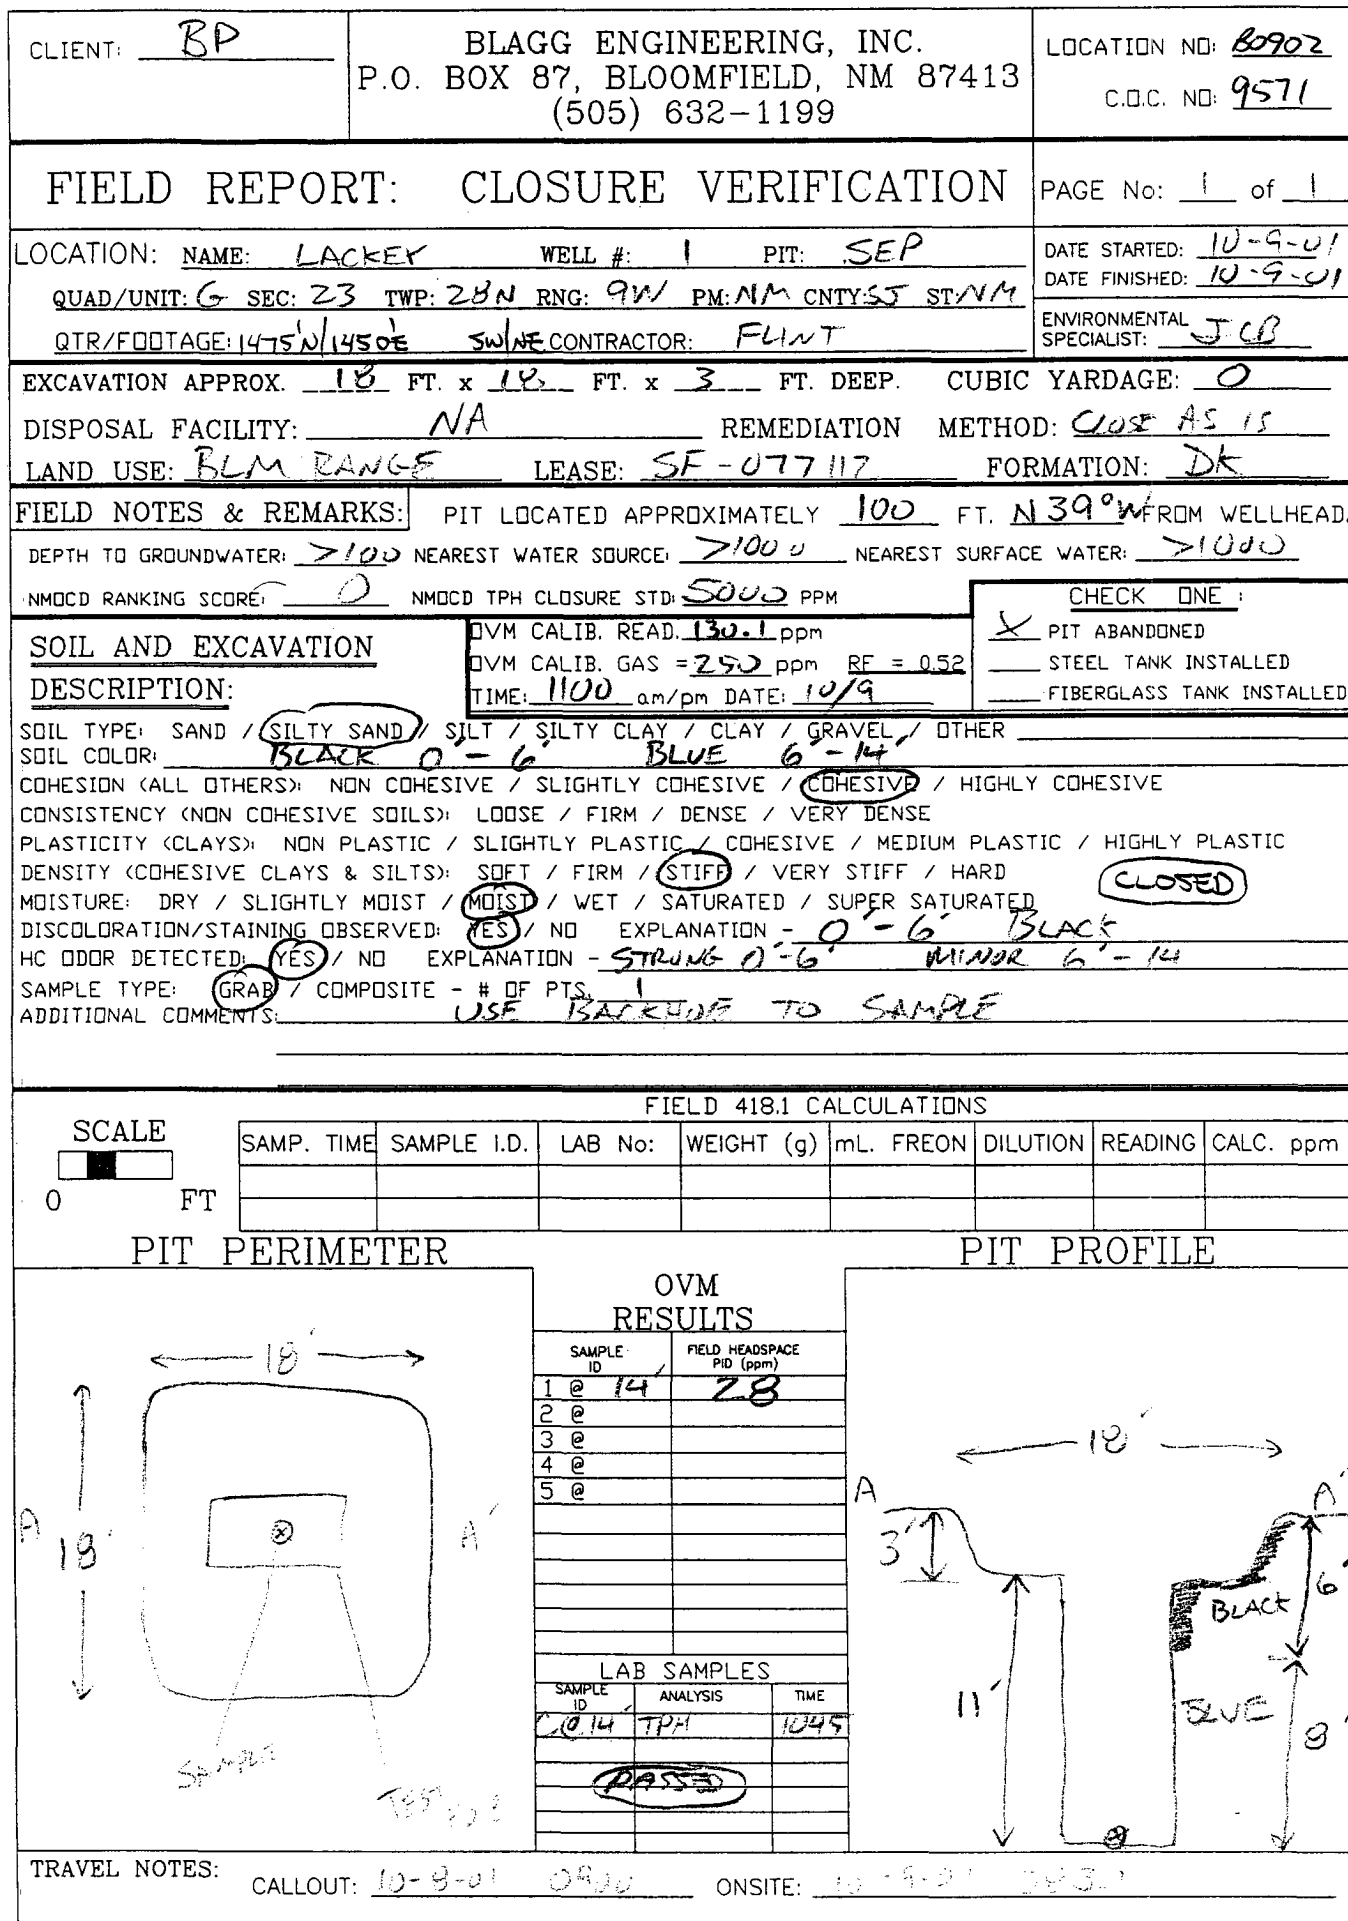 CLIENT: BP
BLAGG ENGINEERING, INC.
P.O. BOX 87, BLOOMFIELD, NM 87413
(505) 632-1199
LOCATION NO: B0902
C.O.C. NO: 9571
FIELD REPORT: CLOSURE VERIFICATION
PAGE No: 1 of 1
LOCATION: NAME: LACKEY WELL #: 1 PIT: SEP
QUAD/UNIT: G SEC: 23 TWP: 28N RNG: 9W PM: NM CNTY: SJ ST: NM
QTR/FOOTAGE: 1475'N/1450'E SW/NE CONTRACTOR: FLINT
DATE STARTED: 10-9-01
DATE FINISHED: 10-9-01
ENVIRONMENTAL
SPECIALIST: JCB
EXCAVATION APPROX. 18 FT. x 18 FT. x 3 FT. DEEP. CUBIC YARDAGE: 0
DISPOSAL FACILITY: NA REMEDIATION METHOD: CLOSE AS IS
LAND USE: BLM RANGE LEASE: SF-077117 FORMATION: DK
FIELD NOTES & REMARKS: PIT LOCATED APPROXIMATELY 100 FT. N39°W FROM WELLHEAD.
DEPTH TO GROUNDWATER: >100 NEAREST WATER SOURCE: >1000 NEAREST SURFACE WATER: >1000
NMOCD RANKING SCORE: 0 NMOCD TPH CLOSURE STD: 5000 PPM
CHECK ONE :
X PIT ABANDONED
STEEL TANK INSTALLED
FIBERGLASS TANK INSTALLED
SOIL AND EXCAVATION
DESCRIPTION:
OVM CALIB. READ. 130.1 ppm
OVM CALIB. GAS = 250 ppm RF = 0.52
TIME: 1100 am/pm DATE: 10/9
SOIL TYPE: SAND / SILTY SAND / SILT / SILTY CLAY / CLAY / GRAVEL / OTHER
SOIL COLOR: BLACK 0'-6' BLUE 6'-14'
COHESION (ALL OTHERS): NON COHESIVE / SLIGHTLY COHESIVE / COHESIVE / HIGHLY COHESIVE
CONSISTENCY (NON COHESIVE SOILS): LOOSE / FIRM / DENSE / VERY DENSE
PLASTICITY (CLAYS): NON PLASTIC / SLIGHTLY PLASTIC / COHESIVE / MEDIUM PLASTIC / HIGHLY PLASTIC
DENSITY (COHESIVE CLAYS & SILTS): SOFT / FIRM / STIFF / VERY STIFF / HARD
CLOSED
MOISTURE: DRY / SLIGHTLY MOIST / MOIST / WET / SATURATED / SUPER SATURATED
DISCOLORATION/STAINING OBSERVED: YES / NO EXPLANATION - 0'-6' BLACK
HC ODOR DETECTED: YES / NO EXPLANATION - STRONG 0'-6' MINOR 6'-14
SAMPLE TYPE: GRAB / COMPOSITE - # OF PTS. 1
ADDITIONAL COMMENTS: USE BACKHOE TO SAMPLE
SCALE
0 FT
FIELD 418.1 CALCULATIONS
SAMP. TIME SAMPLE I.D. LAB No: WEIGHT (g) mL. FREON DILUTION READING CALC. ppm
PIT PERIMETER
18'
A 18' A'
SAMPLE
TEST
OVM
RESULTS
SAMPLE ID FIELD HEADSPACE PID (ppm)
1 @ 14' 28
2 @
3 @
4 @
5 @
LAB SAMPLES
SAMPLE ID ANALYSIS TIME
C@14' TPH 1045
PASSED
PIT PROFILE
18'
A A'
3'
6'
BLACK
11'
BLUE
8'
TRAVEL NOTES: CALLOUT: 10-8-01 0900 ONSITE: